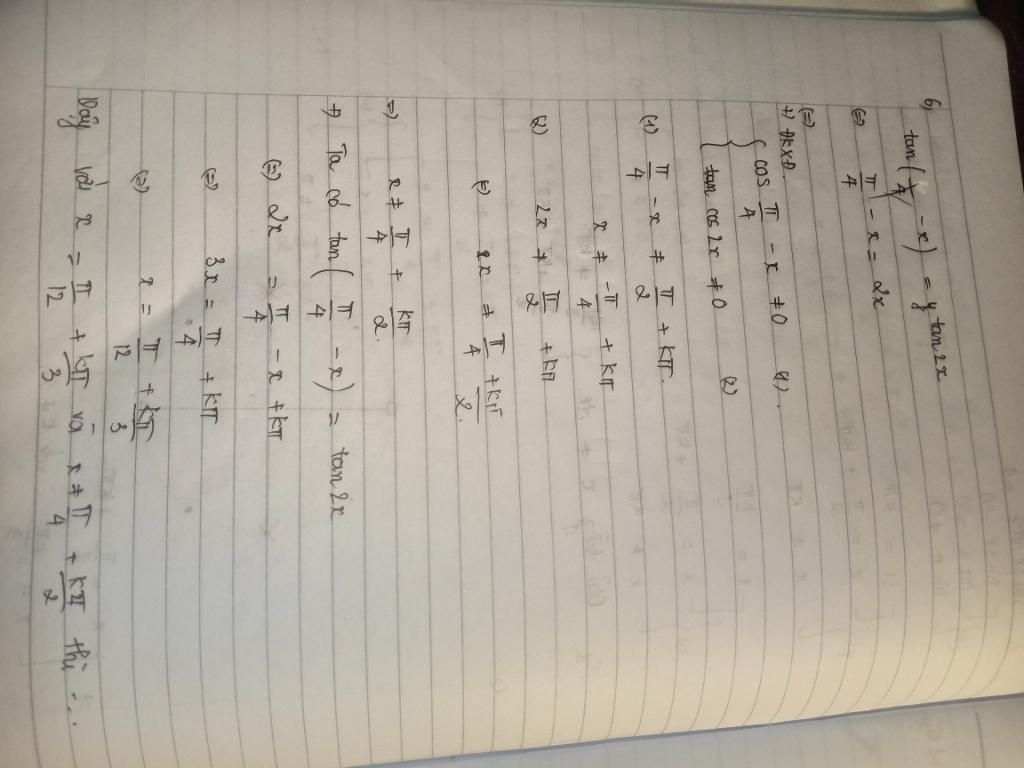 6) tan(π/4 - x) = y tan2x
(=) π/4 - x = 2x
(=)
+) ĐKXĐ.
{ cos π/4 - x ≠ 0 (1).
cos2x ≠ 0 (2)
(1) π/4 - x ≠ π/2 + kπ.
x ≠ -π/4 + kπ
(2) 2x ≠ π/2 + kπ
(=) x ≠ π/4 + kπ/2.
=) x ≠ π/4 + kπ/2.
+) Ta có tan(π/4 - x) = tan2x
(=) 2x = π/4 - x + kπ
(=) 3x = π/4 + kπ
(=) x = π/12 + kπ/3
Vậy với x = π/12 + kπ/3 và x ≠ π/4 + kπ/2 thì ...